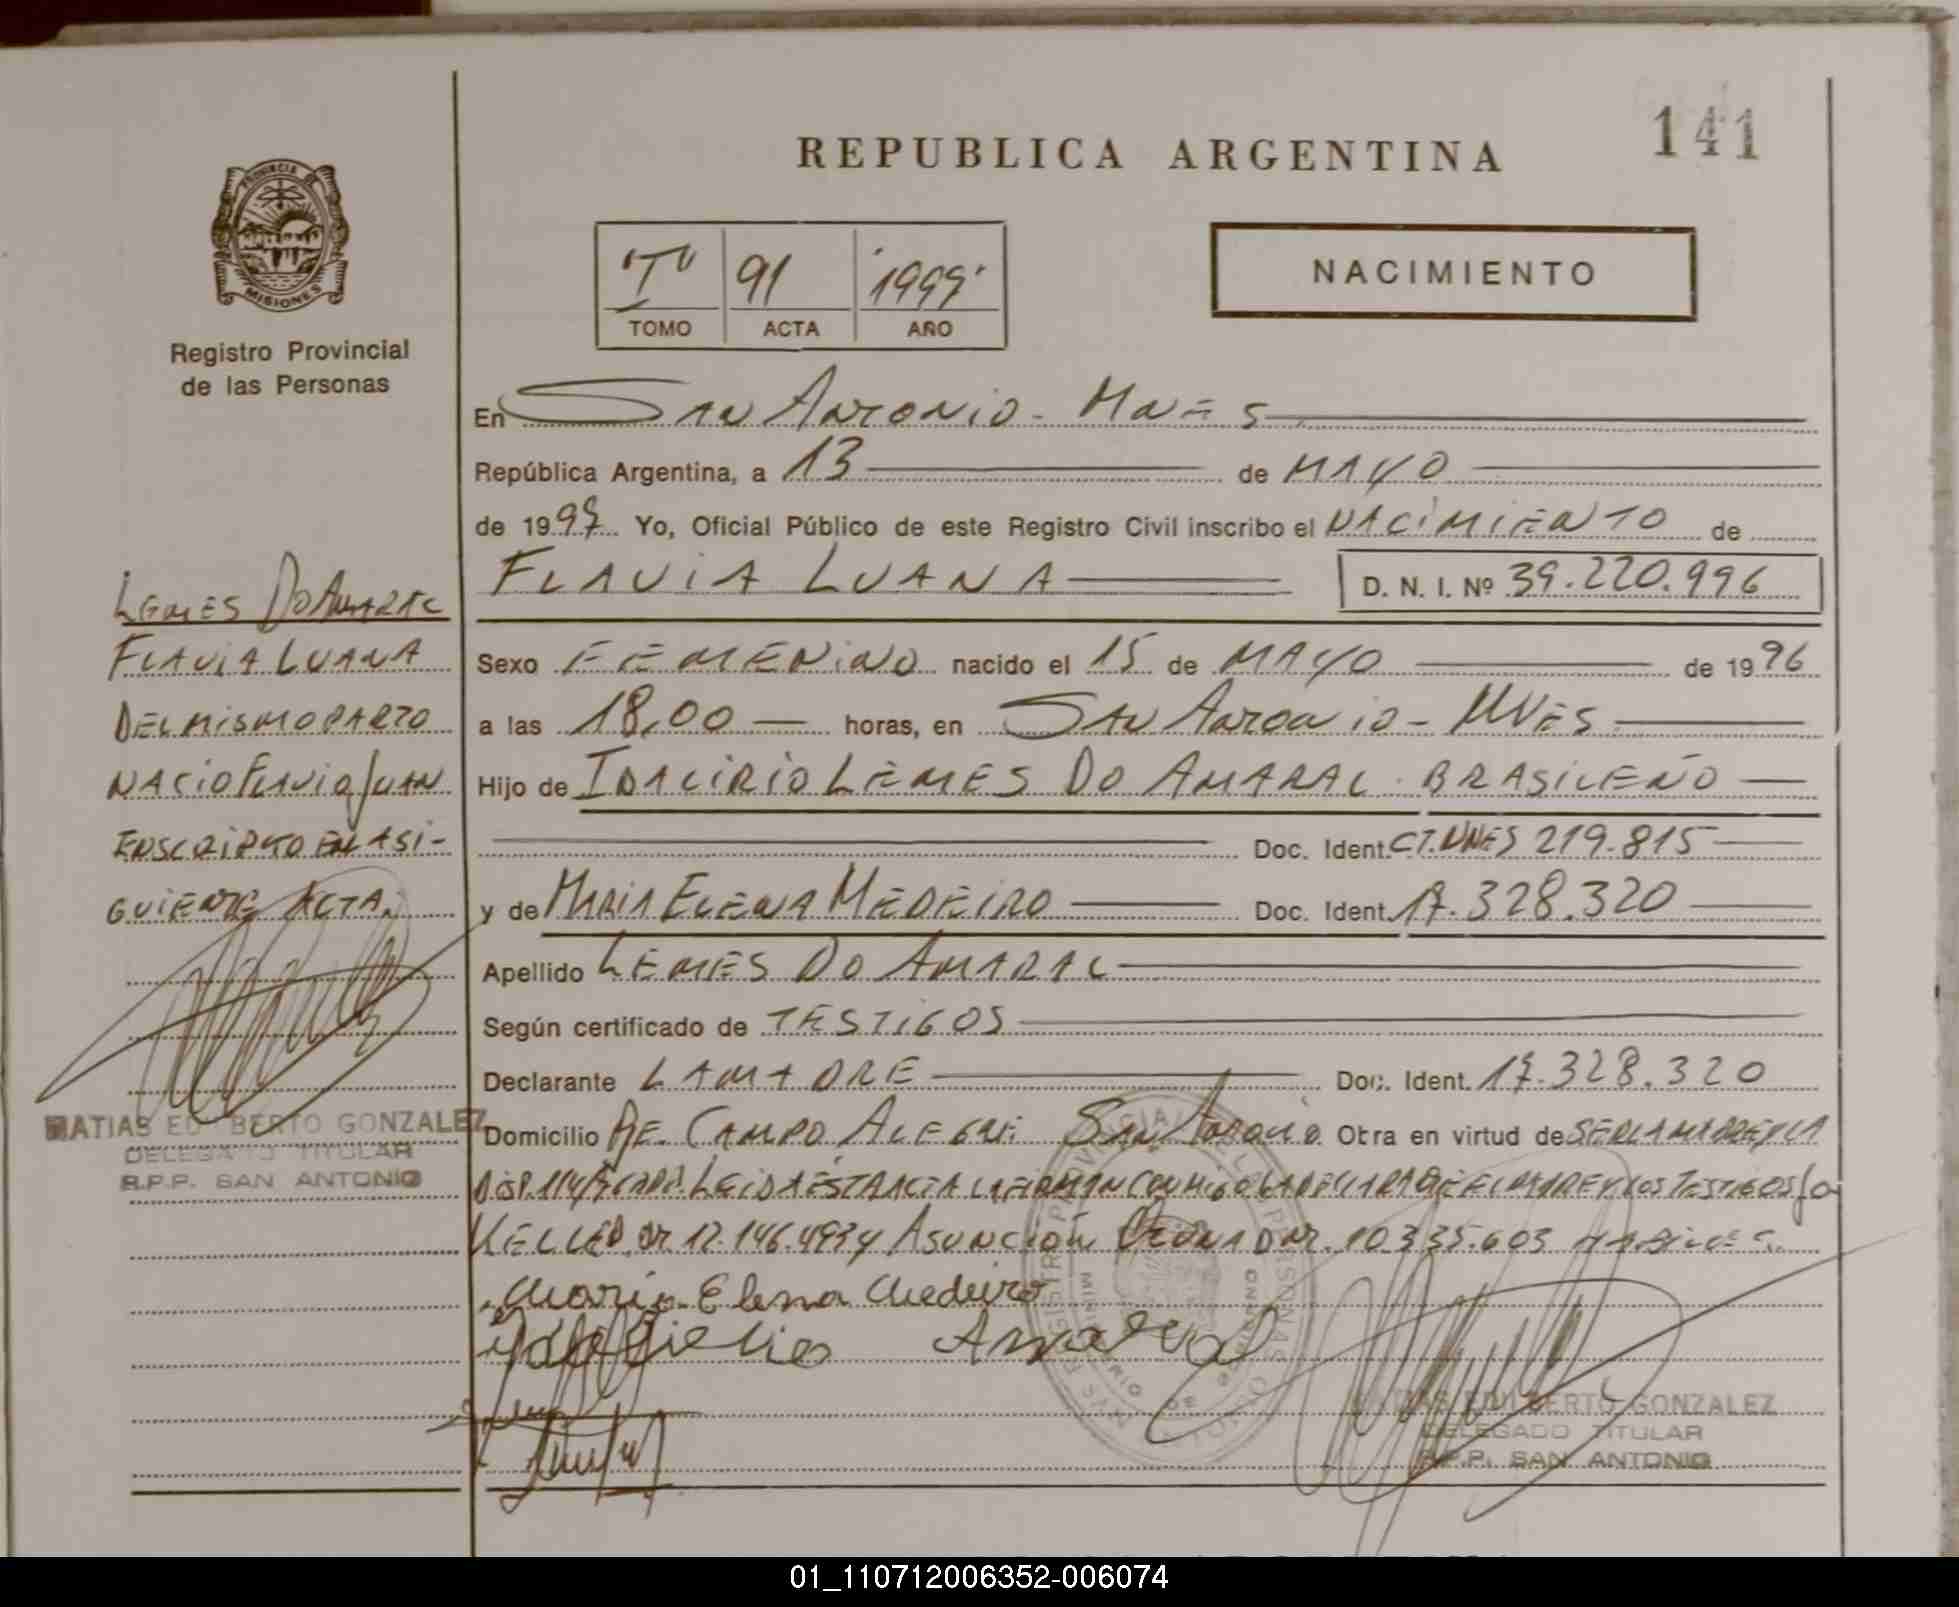 141
REPUBLICA ARGENTINA
PROVINCIA DE
MISIONES
Registro Provincial
de las Personas
"I" 91 1999
TOMO ACTA AÑO
NACIMIENTO
En SAN ANTONIO - MNES
República Argentina, a 13 de MAYO
de 1999 Yo, Oficial Público de este Registro Civil inscribo el NACIMIENTO de
FLAVIA LUANA D. N. I. Nº 39.220.996
LEMES DO AMARAL
FLAVIA LUANA
DEL MISMO PARTO
NACIO FLAVIO JUAN
INSCRIPTO EN LA SI-
GUIENTE ACTA.
MATIAS EDILBERTO GONZALEZ
DELEGADO TITULAR
R.P.P. SAN ANTONIO
Sexo FEMENINO nacido el 15 de MAYO de 1996
a las 18,00 horas, en SAN ANTONIO - MNES
Hijo de IDACIRIO LEMES DO AMARAL - BRASILEÑO
Doc. Ident. CI. MNES 219.815
y de MARIA ELENA MEDEIRO Doc. Ident. 17.328.320
Apellido LEMES DO AMARAL
Según certificado de TESTIGOS
Declarante LA MADRE Doc. Ident. 17.328.320
Domicilio PJE. CAMPO ALEGRE SAN ANTONIO Obra en virtud de SER LA MADRE Y LA
LEIDA ESTA ACTA LA FIRMAN CONMIGO LA DECLARANTE EL PADRE Y LOS TESTIGOS
KELLER 12.146.493 Y ASUNCION 10.335.603
Maria Elena Medeiro
Amaral
MATIAS EDILBERTO GONZALEZ
DELEGADO TITULAR
R.P.P. SAN ANTONIO
01_110712006352-006074